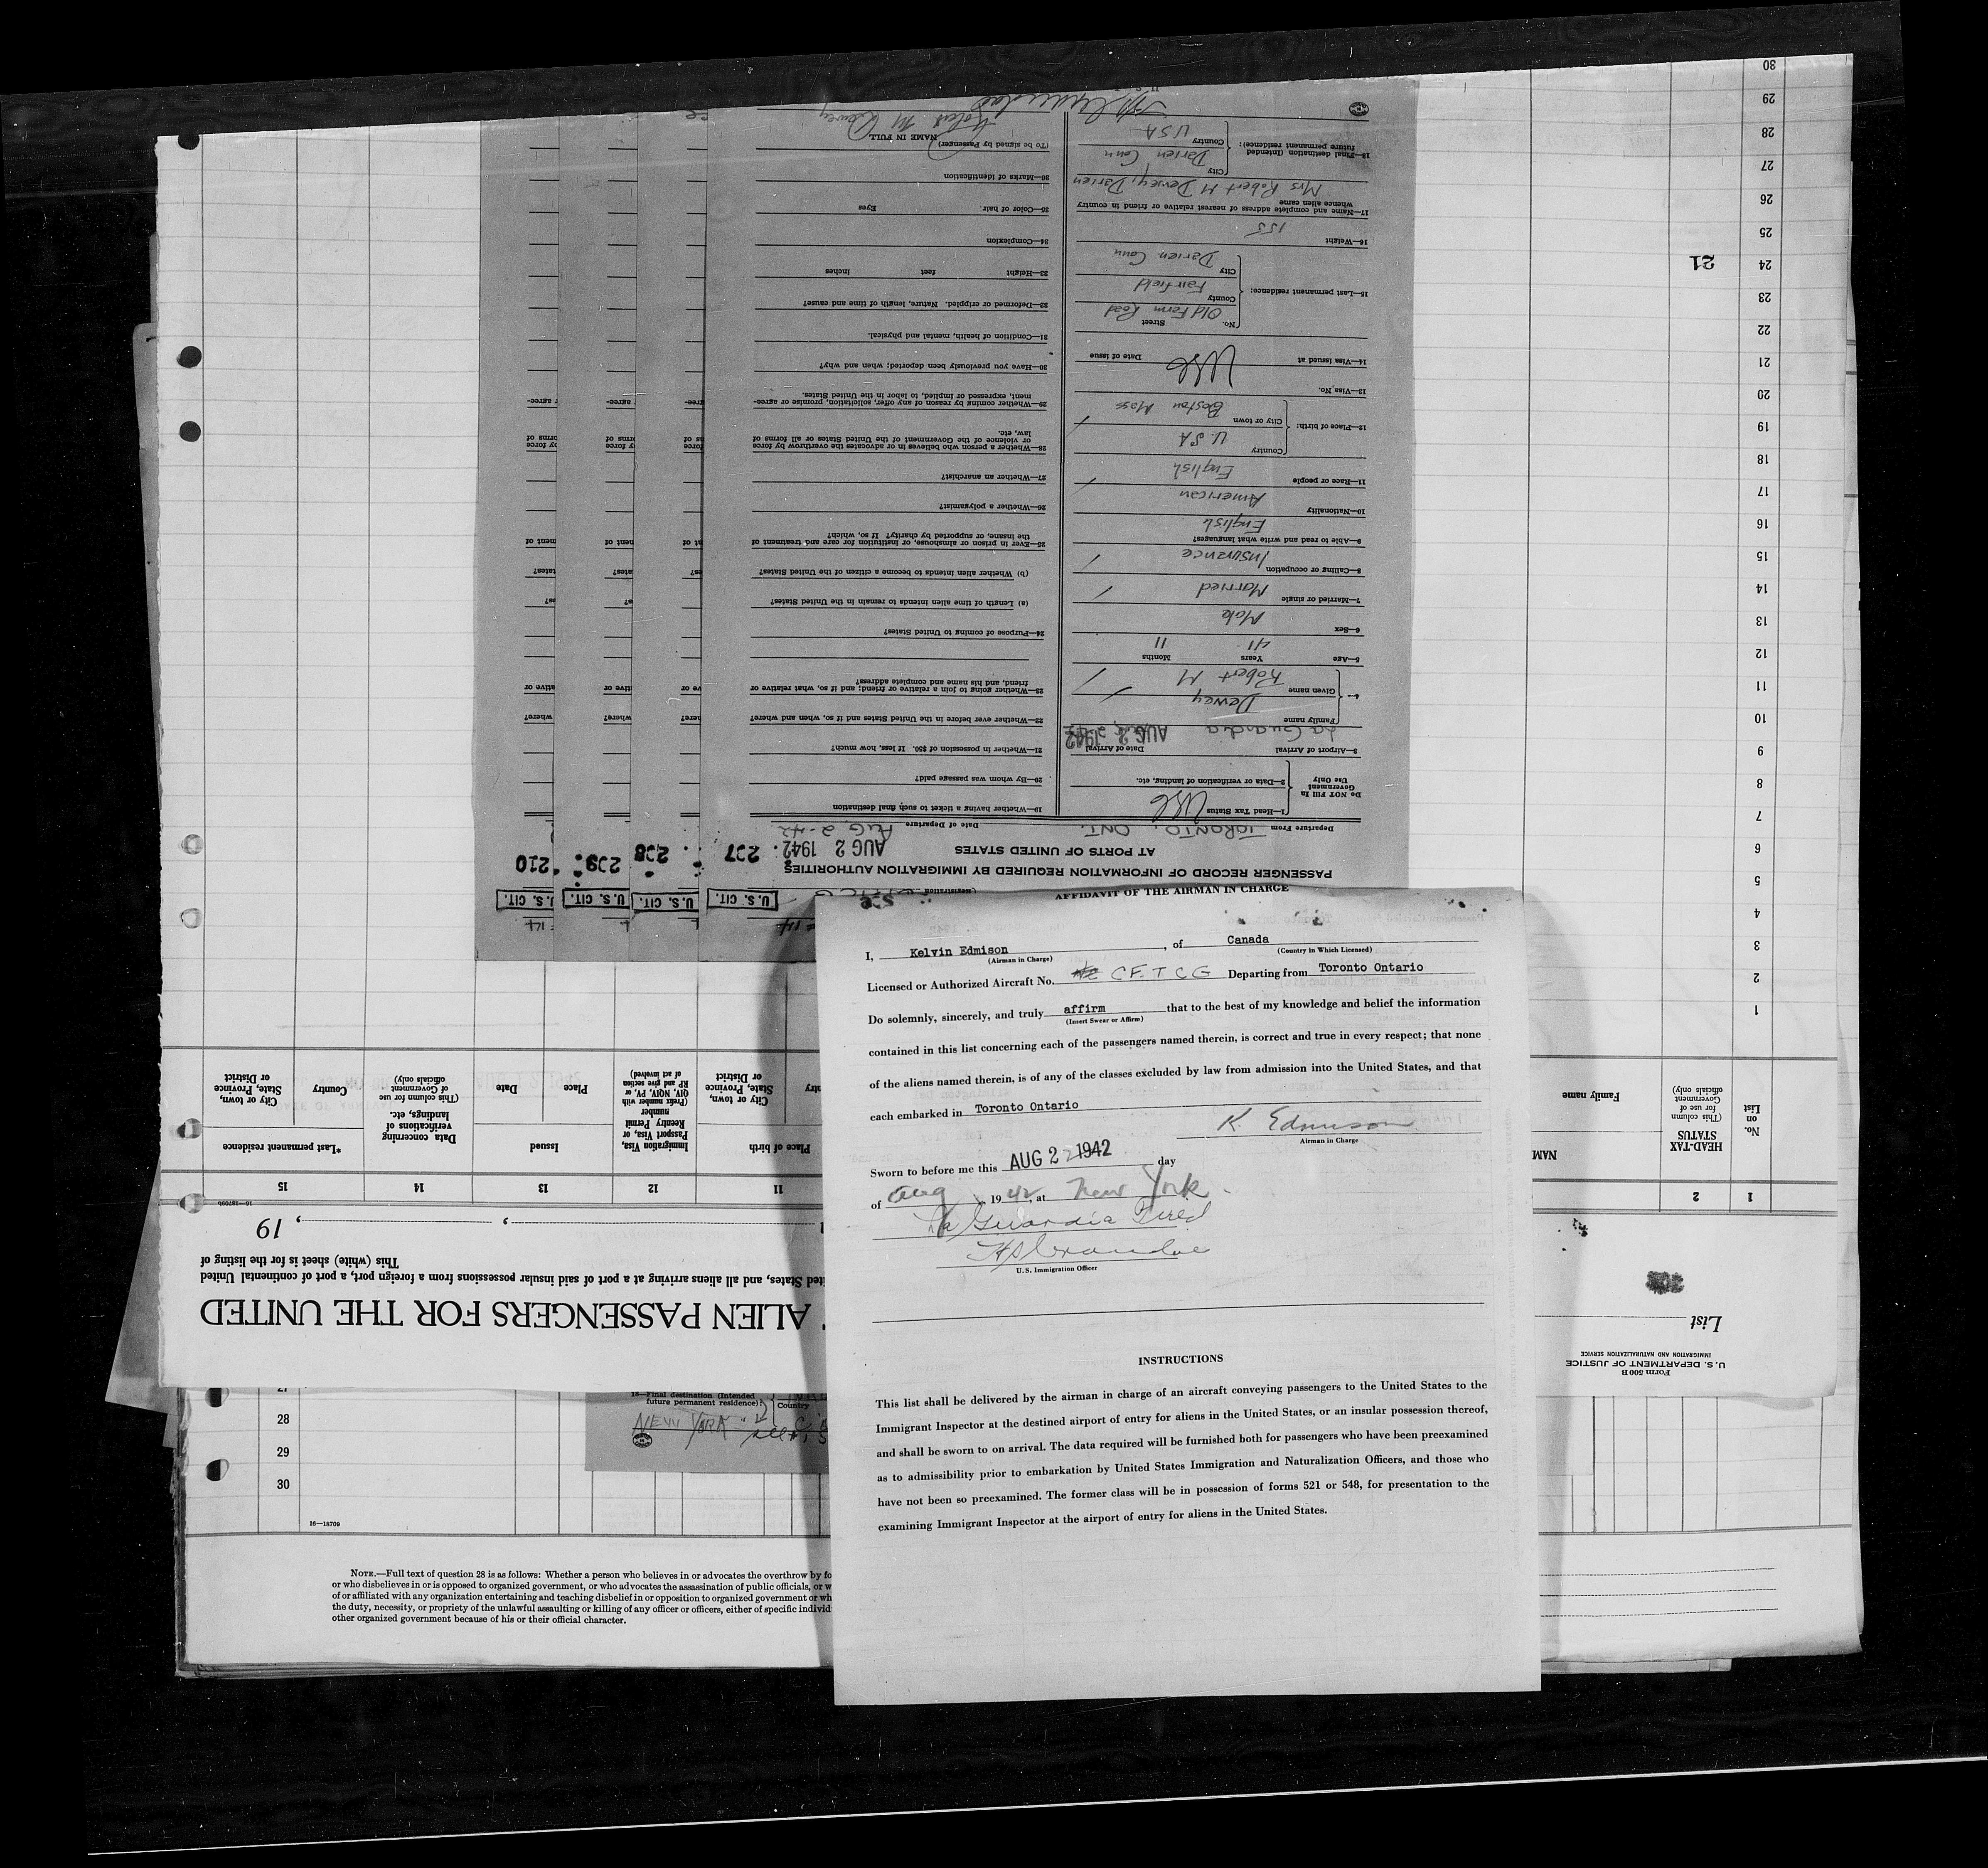 AFFIDAVIT OF THE AIRMAN IN CHARGE
I, Kelvin Edmison, of Canada
(Airman in Charge) (Country in Which Licensed)
Licensed or Authorized Aircraft No. CF.TCG Departing from Toronto Ontario
Do solemnly, sincerely, and truly affirm that to the best of my knowledge and belief the information
(Insert Swear or Affirm)
contained in this list concerning each of the passengers named therein, is correct and true in every respect; that none
of the aliens named therein, is of any of the classes excluded by law from admission into the United States, and that
each embarked in Toronto Ontario
K. Edmison
Airman in Charge
Sworn to before me this AUG 2 1942 day
of Aug, 1942, at New York
La Guardia Field
U.S. Immigration Officer
INSTRUCTIONS
This list shall be delivered by the airman in charge of an aircraft conveying passengers to the United States to the
Immigrant Inspector at the destined airport of entry for aliens in the United States, or an insular possession thereof,
and shall be sworn to on arrival. The data required will be furnished both for passengers who have been preexamined
as to admissibility prior to embarkation by United States Immigration and Naturalization Officers, and those who
have not been so preexamined. The former class will be in possession of forms 521 or 548, for presentation to the
examining Immigrant Inspector at the airport of entry for aliens in the United States.
U.S. CIT.
U.S. CIT.
U.S. CIT.
U.S. CIT.
207
208
209
210
AUG 2 1942
PASSENGER RECORD OF INFORMATION REQUIRED BY IMMIGRATION AUTHORITIES
AT PORTS OF UNITED STATES
Departure From TORONTO, ONT. Date of Departure AUG. 2-42
Do NOT Fill In
Government
Use Only
1—Head Tax Status USC
2—Data or verification of landing, etc.
3—Airport of Arrival La Guardia Date of Arrival AUG 2 1942
4— Family name Dewey
Given name Robert M
5—Age 41 Years 11 Months
6—Sex Male
7—Married or single Married
8—Calling or occupation Insurance
9—Able to read and write what languages? English
10—Nationality American
11—Race or people English
12—Place of birth: Country U.S.A
City or town Boston Mass
13—Visa No.
14—Visa Issued at USC Date of issue
15—Last permanent residence: No. Street Old Farm Road
County Fairfield
City Darien Conn
16—Weight 155
17—Name and complete address of nearest relative or friend in country
whence alien came
Mrs Robert M Dewey, Darien
18—Final destination (Intended
future permanent residence):
City Darien Conn
Country USA
19—Whether having a ticket to such final destination
20—By whom was passage paid?
21—Whether in possession of $50. If less, how much?
22—Whether ever before in the United States and if so, when and where?
23—Whether going to join a relative or friend; and if so, what relative or
friend, and his name and complete address?
24—Purpose of coming to United States?
(a) Length of time alien intends to remain in the United States?
(b) Whether alien intends to become a citizen of the United States?
25—Ever in prison or almshouse, or institution for care and treatment of
the insane, or supported by charity? If so, which?
26—Whether a polygamist?
27—Whether an anarchist?
28—Whether a person who believes in or advocates the overthrow by force
or violence of the Government of the United States or all forms of
law, etc.
29—Whether coming by reason of any offer, solicitation, promise or agree-
ment, expressed or implied, to labor in the United States.
30—Have you previously been deported; when and why?
31—Condition of health, mental and physical.
32—Deformed or crippled. Nature, length of time and cause?
33—Height feet inches
34—Complexion
35—Color of hair. Eyes
36—Marks of identification
(To be signed by Passenger)
NAME IN FULL
Robert M Dewey
Form 500B
U. S. DEPARTMENT OF JUSTICE
IMMIGRATION AND NATURALIZATION SERVICE
List
ALIEN PASSENGERS FOR THE UNITED
ited States, and all aliens arriving at a port of said insular possessions from a foreign port, a port of continental United
This (white) sheet is for the listing of
, 19
1 2 11 12 13 14 15
No.
on
List
HEAD-TAX
STATUS
(This column
for use of
Government
officials only)
NAM
Family name
Place of birth
City or town,
State, Province
or District
Immigration Visa,
Passport Visa, or
Reentry Permit
number
(Prefix number with
QIV, NQIV, PV, or
RP and give section
of act involved)
Issued
Place
Date
Data concerning
verifications of
landings, etc.
(This column for use
of Government
officials only)
*Last permanent residence
Country
City or town,
State, Province
or District
1
2
3
4
5
6
7
8
9
10
11
12
13
14
15
16
17
18
19
20
21
22
23
24
25
26
27
28
29
30
21
18—Final destination (Intended
future permanent residence)?
Country
NEW YORK
27
28
29
30
16—18709
NOTE.—Full text of question 28 is as follows: Whether a person who believes in or advocates the overthrow by fo
or who disbelieves in or is opposed to organized government, or who advocates the assassination of public officials, or w
of or affiliated with any organization entertaining and teaching disbelief in or opposition to organized government or wh
the duty, necessity, or propriety of the unlawful assaulting or killing of any officer or officers, either of specific individ
other organized government because of his or their official character.